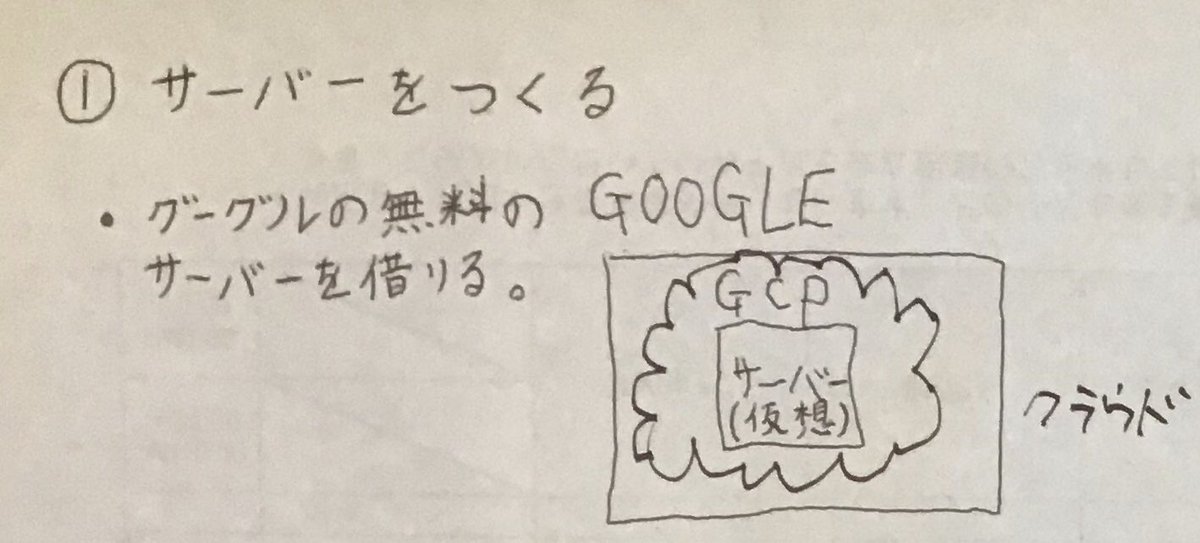 ① サーバーをつくる
・グーグルの無料の
サーバーを借りる。
GOOGLE
GCP
サーバー
(仮想)
クラウド